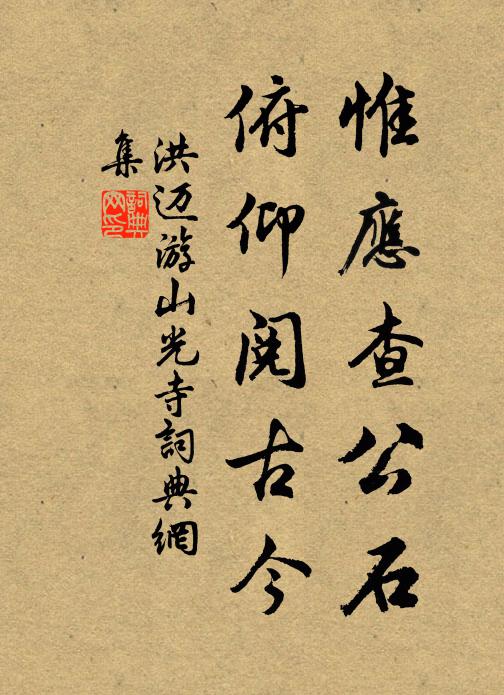 惟應查公石
俯仰閱古今
洪迈游山光寺詞典網
集
詞典網印